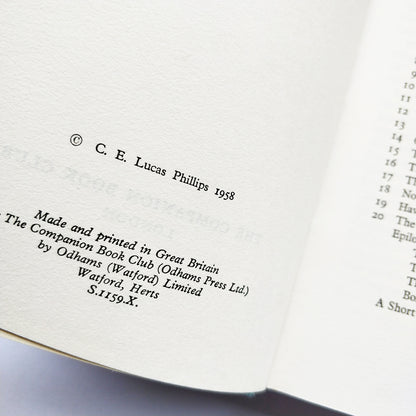 © C. E. Lucas Phillips 1958
Made and printed in Great Britain
The Companion Book Club (Odhams Press Ltd.)
by Odhams (Watford) Limited
Watford, Herts
S.1159.X.
10
11
12
13
14
15 T
16 Th
17 Th
18 No
19 Hav
20 The
Epilo
T
Th
Th
Bo
A Short